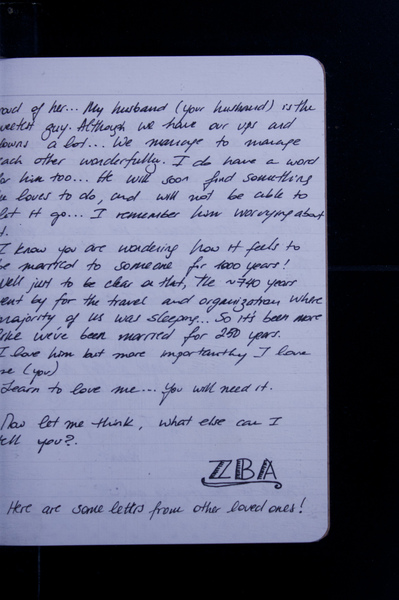 oud of her... My husband (your husband) is the
weetest guy. Although we have our ups and
downs a lot... We manage to manage
each other wonderfully. I do have a word
for him too... He will soon find something
he loves to do, and will not be able to
let it go... I remember him worrying about
it.
I know you are wondering how it feels to
be married to someone for 1000 years!
Well just to be clear on that, the ~740 years
went by for the travel and organization where
majority of us was sleeping... So it's been more
like we've been married for 250 years.
I love him but more importantly I love
me (you)
Learn to love me... You will need it.
Now let me think, what else can I
tell you?.
ZBA
Here are some letters from other loved ones!